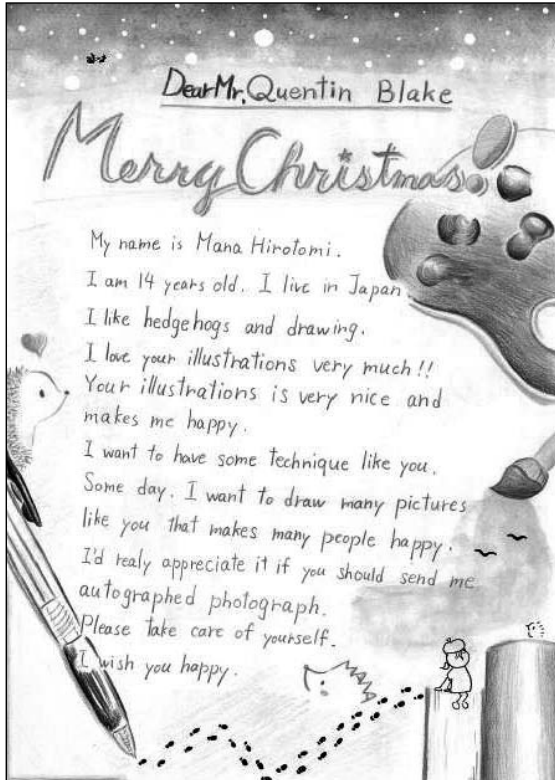 Dear Mr. Quentin Blake
Merry Christmas
My name is Mana Hirotomi.
I am 14 years old. I live in Japan
I like hedgehogs and drawing.
I love your illustrations very much!!
Your illustrations is very nice and
makes me happy.
I want to have some technique like you.
Some day. I want to draw many pictures
like you that makes many people happy.
I'd realy appreciate it if you should send me
autographed photograph.
Please take care of yourself.
I wish you happy.